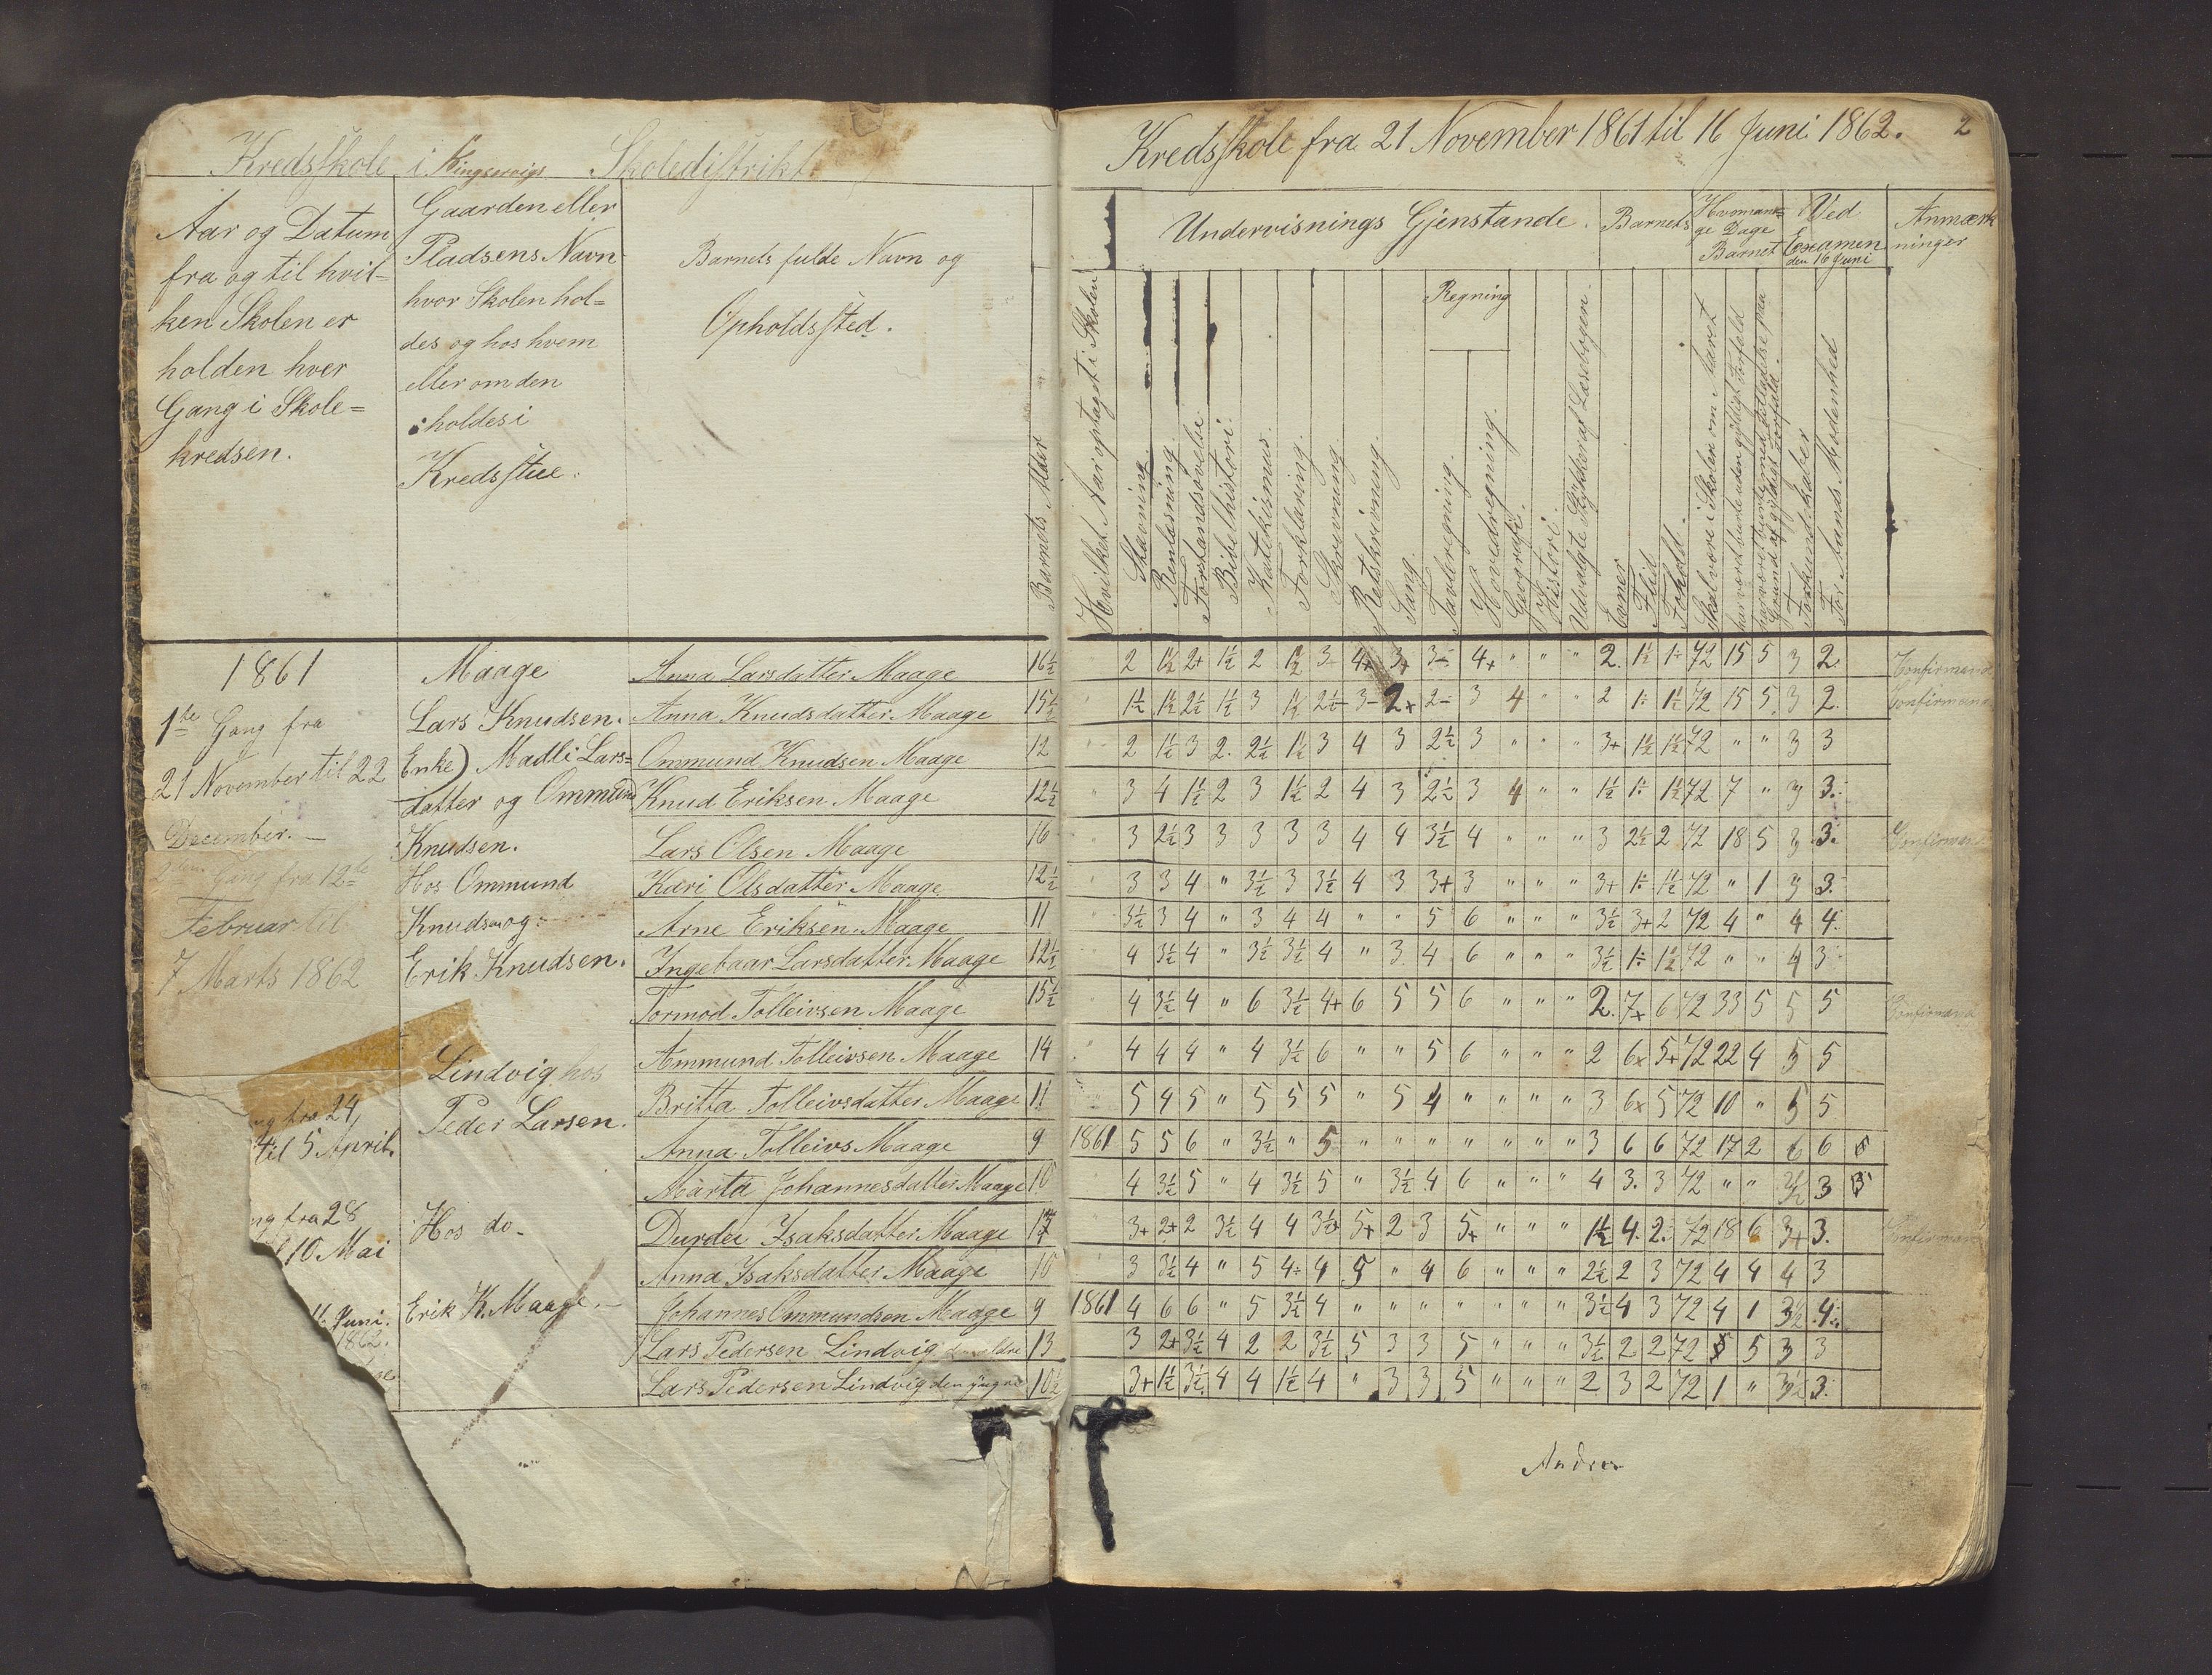 Kredsskole i Kingservigs Skoledistrikt.
Aar og Datum
fra og til hvil-
ken Skolen er
holden hver
Gang i Skole=
kredsen.
Gaarden eller
Pladsens Navn
hvor Skolen hol=
des og hos hvem
eller om den
holdes i
Kredsstue.
Barnets fulde Navn og
Opholdssted.
Barnets Alder
1861
1ste Gang fra
21 November til 22
December. —
Gang fra 12te
Februar til
7 Marts 1862
fra 24
til 5 April.
fra 28
10 Mai
Juni.
1862.
Maage
Lars Knudsen.
Enke) Madli Lars=
datter og Ommund
Knudsen.
Hos Ommund
Knudsen og
Erik Knudsen.
Lindvig hos
Peder Larsen.
Hos do.
Erik K. Maage. —
Anna Larsdatter Maage 16½
Anna Knudsdatter Maage 15½
Ommund Knudsen Maage 12
Knud Eriksen Maage 12½
Lars Olsen Maage 16
Kari Olsdatter Maage 12½
Arne Eriksen Maage 11
Ingebaar Larsdatter Maage 12½
Tormod Tolleivsen Maage 15½
Ammund Tolleivsen Maage 14
Britta Tolleivsdatter Maage 11
Anna Tolleivs Maage 9
Marta Johannesdatter Maage 10
Durdei Isaksdatter Maage
Anna Isaksdatter Maage 10
Johannes Ommundsen Maage 9
Lars Pedersen Lindvig den ældre 13
Lars Pedersen Lindvig den yngre 10½
Kredsskole fra 21 November 1861 til 16 Juni 1862. 2
Undervisnings Gjenstande.
Barnets
Hvorman=
ge Dage
Barnet
Ved
Examen
den 16 Juni
Anmærk
ninger
Hvilket Aar optaget i Skolen
Stavning.
Renlæsning.
Forstandsøvelse
Bibelhistori.
Katekismus.
Forklaring.
Skrivning
Retskrivning.
Sang.
Regning
Tavleregning.
Hovedregning.
Geografi.
Histori.
Udvalgte Stykker af Læsebogen.
Evner
Flid
Forhold.
Skal være i Skolen om Aaret
har været borte uden gyldigt Forfald
Grund af gyldigt Forfald.
Forkundskaber
For Aands Modenhed
2 1½ 2+ 1½ 2 1½ 3 4+ 3+ 3- 4+ " " " 2. 1½ 1÷ 72 15 5 3 2. Confirmand
1½ 1½ 2½ 1½ 3 1½ 2½ 3- 2+ 2- 3 4 " " 2 1÷ 1½ 72 15 5 3 2. Confirmand
2 1½ 3 2. 2½ 1½ 3 4 3 2½ 3 " " " 3+ 1½ 1½ 72 " " 3 3
3 4 1½ 2 3 1½ 2 4 3 2½ 3 4 " " 1½ 1÷ 1½ 72 7 " 3 3.
3 2½ 3 3 3 3 3 4 4 3½ 4 " " " 3 2½ 2 72 18 5 3 3. Confirmand
3 3 4 " 3½ 3 3½ 4 3 3+ 3 " " " 3+ 1÷ 1½ 72 " 1 3 3.
3½ 3 4 " 3 4 4 " " 5 6 " " " 3½ 3+ 2 72 4 " 4 4.
4 3½ 4 " 3½ 3½ 4 " 3 4 6 " " " 3½ 1÷ 1½ 72 " " 4 3
4 3½ 4 " 6 3½ 4+ 6 5 5 6 " " " 2. 7+ 6 72 33 5 5 5 Confirmand
4 4 4 " 4 3½ 6 " " 5 6 " " " 2 6x 5+ 72 22 4 5 5
5 4 5 " 5 5 5 " 5 4 " " " " 3 6x 5 72 10 " 5 5
1861 5 5 6 " 3½ " 5 " " " " " " " 3 6 6 72 17 2 6 6
4 3½ 5 " 4 3½ 5 " 3½ 4 6 " " " 4 3. 3 72 " " 3½ 3
3+ 2+ 2 3½ 4 4 3½ 5+ 2 3 5+ " " " 1½ 4. 2. 72 18 6 3+ 3. Confirmand
3 3½ 4 " 5 4÷ 4 5 " 4 6 " " " 2½ 2 3 72 4 4 4 3
1861 4 6 6 " 5 3½ 4 " " " " " " " 3½ 4 3 72 4 1 3½ 4.
3 2+ 3½ 4 2 2 3½ 5 3 3 5 " " " 3½ 2 2 72 5 5 3 3
3+ 1½ 3½ 4 4 1½ 4 " 3 3 5 " " " 2 3 2 72 1 " 3½ 3.